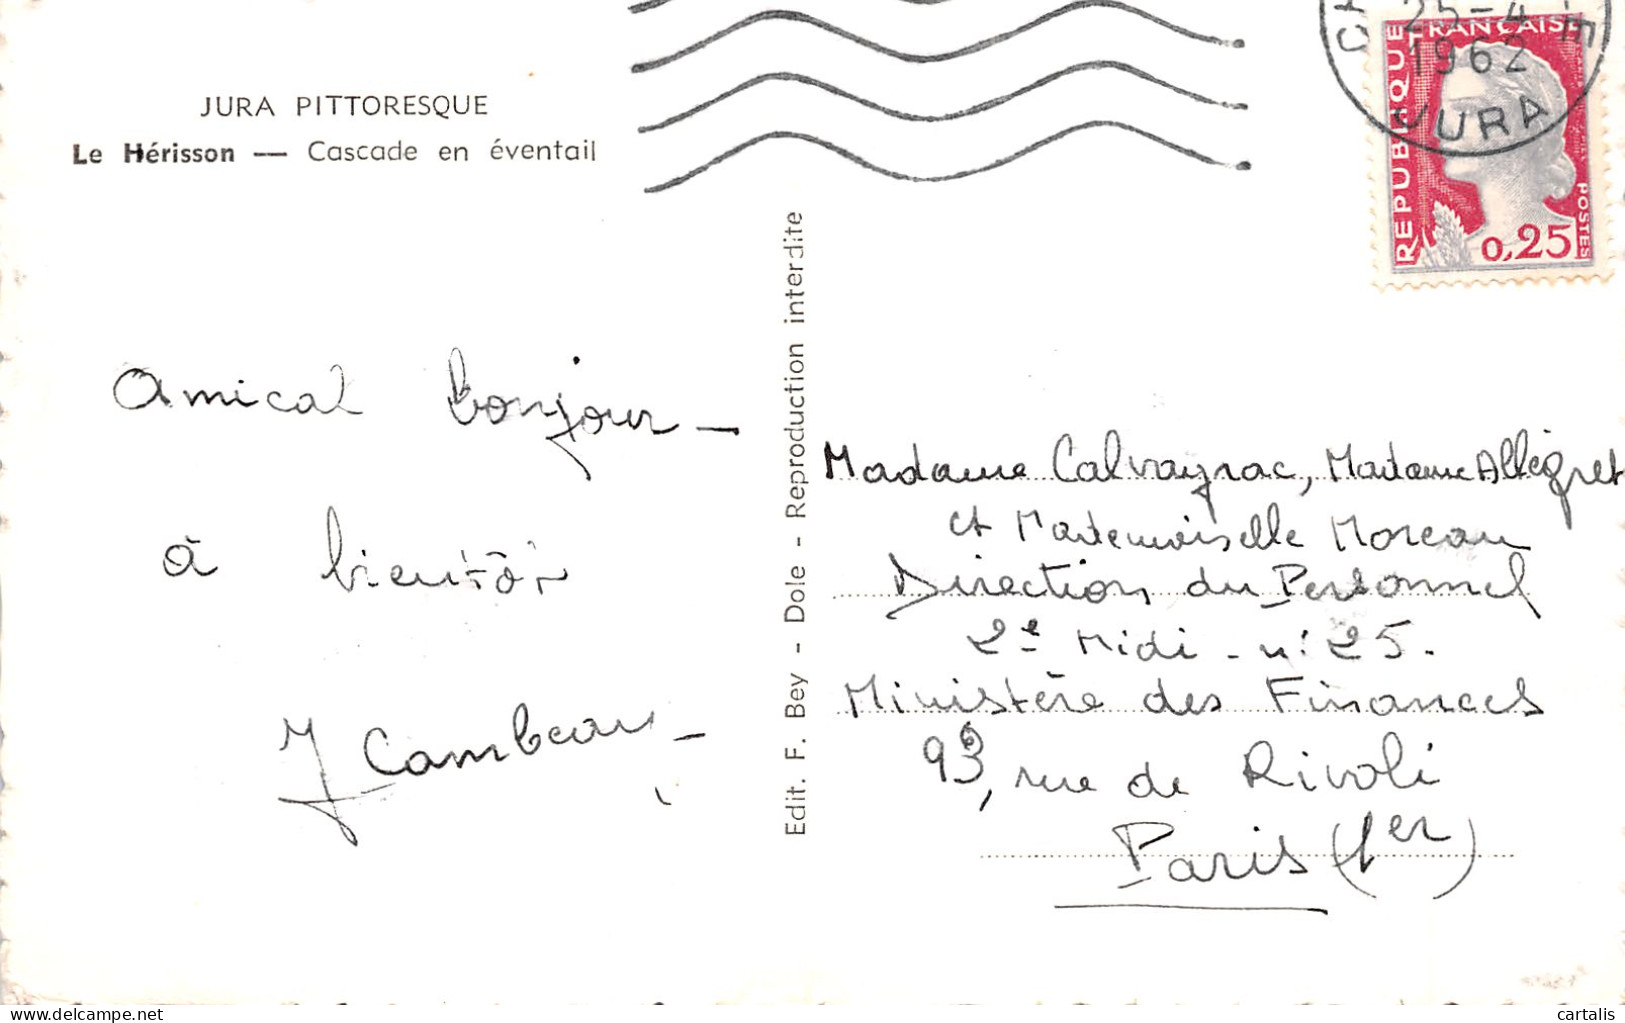 JURA PITTORESQUE
Le Hérisson — Cascade en éventail
25-4
1962
JURA
REPUBLIQUE FRANÇAISE
POSTES
0,25
Amical bonjour —
à bientôt
J Cambeau —
Edit. F. Bey - Dole - Reproduction interdite
Madame Calvayrac, Madame Allégret
et Mademoiselle Moreau
Direction du Personnel
2e Midi - n° 25.
Ministère des Finances
93, rue de Rivoli
Paris (1er)
delcampe.net
cartalis